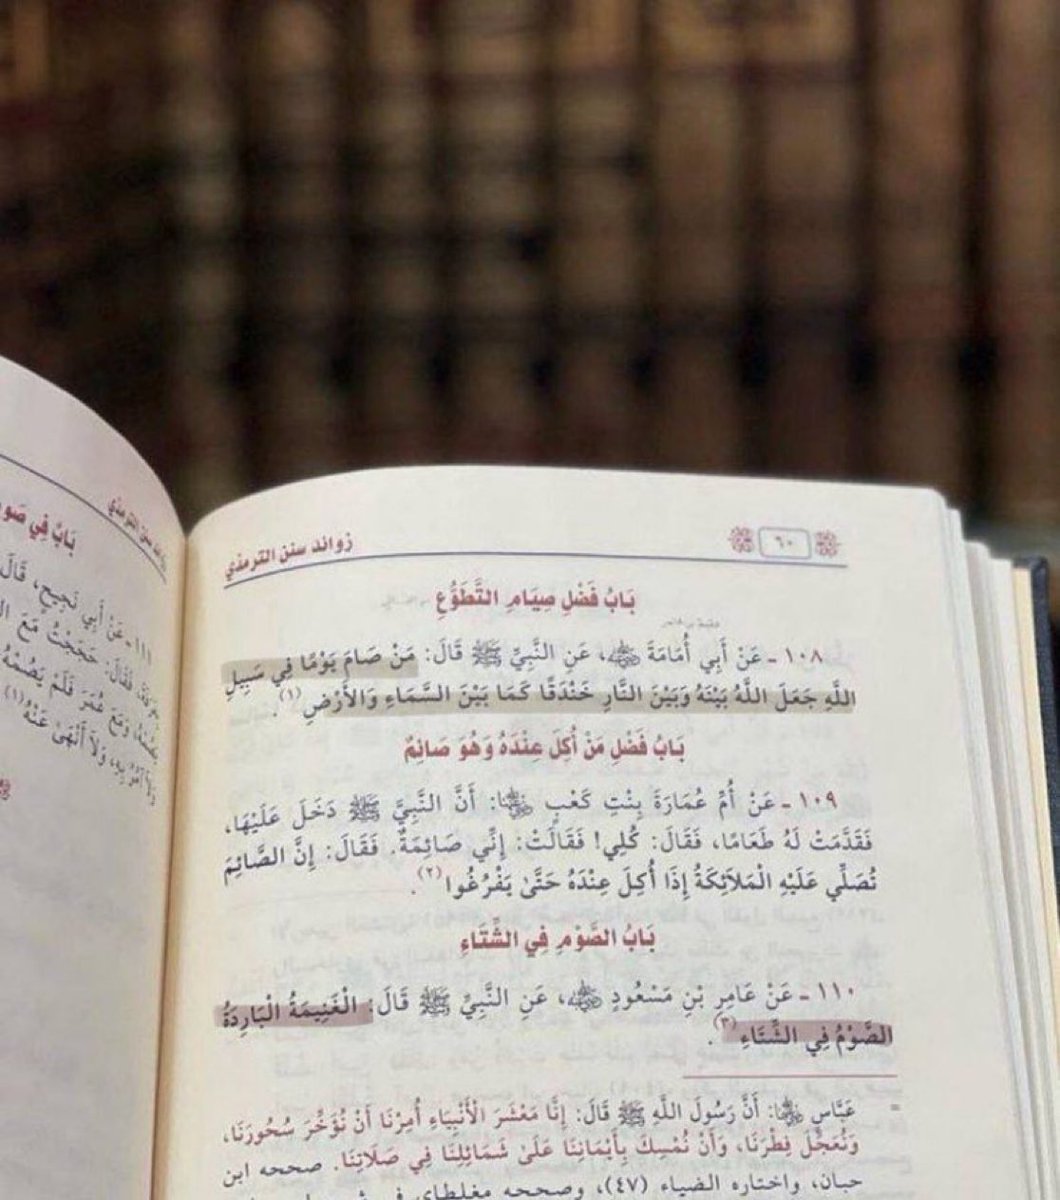 زوائد سنن الترمذي
٦٠
بَابُ فَضْلِ صِيَامِ التَّطَوُّعِ
١٠٨ - عَنْ أَبِي أُمَامَةَ رضي الله عنه، عَنِ النَّبِيِّ ﷺ قَالَ: مَنْ صَامَ يَوْمًا فِي سَبِيلِ
اللَّهِ جَعَلَ اللَّهُ بَيْنَهُ وَبَيْنَ النَّارِ خَنْدَقًا كَمَا بَيْنَ السَّمَاءِ وَالأَرْضِ (١).
بَابُ فَضْلِ مَنْ أُكِلَ عِنْدَهُ وَهُوَ صَائِمٌ
١٠٩ - عَنْ أُمِّ عُمَارَةَ بِنْتِ كَعْبٍ رضي الله عنها: أَنَّ النَّبِيَّ ﷺ دَخَلَ عَلَيْهَا،
فَقَدَّمَتْ لَهُ طَعَامًا، فَقَالَ: كُلِي! فَقَالَتْ: إِنِّي صَائِمَةٌ. فَقَالَ: إِنَّ الصَّائِمَ
تُصَلِّي عَلَيْهِ الْمَلَائِكَةُ إِذَا أُكِلَ عِنْدَهُ حَتَّىٰ يَفْرُغُوا (٢).
بَابُ الصَّوْمِ فِي الشِّتَاءِ
١١٠ - عَنْ عَامِرِ بْنِ مَسْعُودٍ رضي الله عنه، عَنِ النَّبِيِّ ﷺ قَالَ: الْغَنِيمَةُ الْبَارِدَةُ
الصَّوْمُ فِي الشِّتَاءِ (٣).
= عَبَّاسٍ رضي الله عنهما: أَنَّ رَسُولَ اللَّهِ ﷺ قَالَ: إِنَّا مَعْشَرَ الْأَنْبِيَاءِ أُمِرْنَا أَنْ نُؤَخِّرَ سُحُورَنَا،
وَنُعَجِّلَ فِطْرَنَا، وَأَنْ نُمْسِكَ بِأَيْمَانِنَا عَلَىٰ شَمَائِلِنَا فِي صَلَاتِنَا. صححه ابن
حبان، واختاره الضياء (٤٧)، وصححه مغلطاي في
بَابٌ فِي صَوْ
١١١ - عَنْ أَبِي نَجِيحٍ، قَالَ
فَقَالَ: حَجَجْتُ مَعَ
وَمَعَ عُمَرَ فَلَمْ يَصُمْهُ
وَلَا آمُرُ بِهِ، وَلَا أَنْهَىٰ عَنْهُ (١)